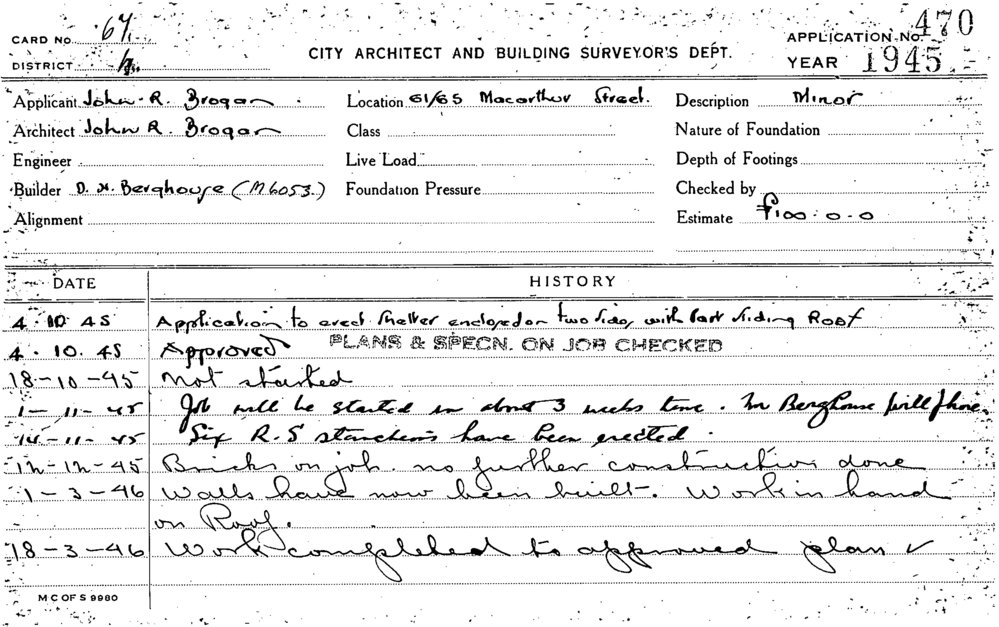 CARD No. 67.
APPLICATION No. 470
DISTRICT h.
CITY ARCHITECT AND BUILDING SURVEYOR'S DEPT.
YEAR 1945
Applicant John R. Brogan Location 61/65 Macarthur Street. Description Minor
Architect John R. Brogan Class Nature of Foundation
Engineer Live Load Depth of Footings
Builder D. H. Berghouse (M6053.) Foundation Pressure Checked by
Alignment Estimate £100.0.0
DATE HISTORY
4.10.45 Application to erect shelter enclosed on two sides with part sliding Roof
4.10.45 Approved PLANS & SPECN. ON JOB CHECKED
18-10-45 Not started
1-11-45 Job will be started in about 3 weeks time. Mr Berghouse will phone.
14-11-45 Six R.S stanchions have been erected.
12-12-45 Bricks on job. no further construction done
1-3-46 Walls have now been built. Work in hand
on Roof.
18-3-46 Work completed to approved plan ✓
M C OF S 9980